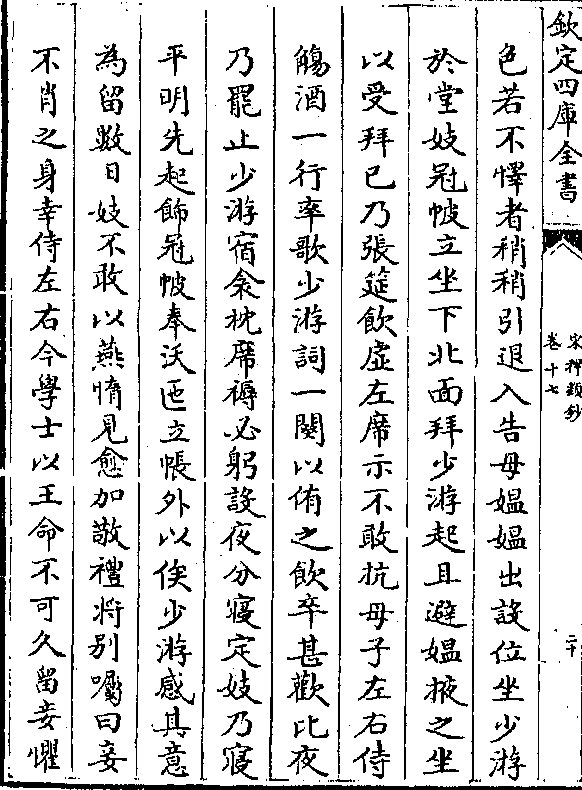 欽定四庫全書
宋稗類鈔
卷十七
二十
色若不懌者稍稍引退入告母媼媼出設位坐少游
於堂妓冠帔立坐下北面拜少游起且避媼掖之坐
以受拜已乃張筵飲虛左席示不敢抗母子左右侍
觴酒一行率歌少游詞一闋以侑之飲卒甚歡比夜
乃罷止少游宿衾枕席褥必躬設夜分寢定妓乃寢
平明先起飾冠帔奉沃匜立帳外以俟少游感其意
為留數日妓不敢以燕惰見愈加敬禮將别囑曰妾
不肖之身幸侍左右今學士以王命不可久留妾懼